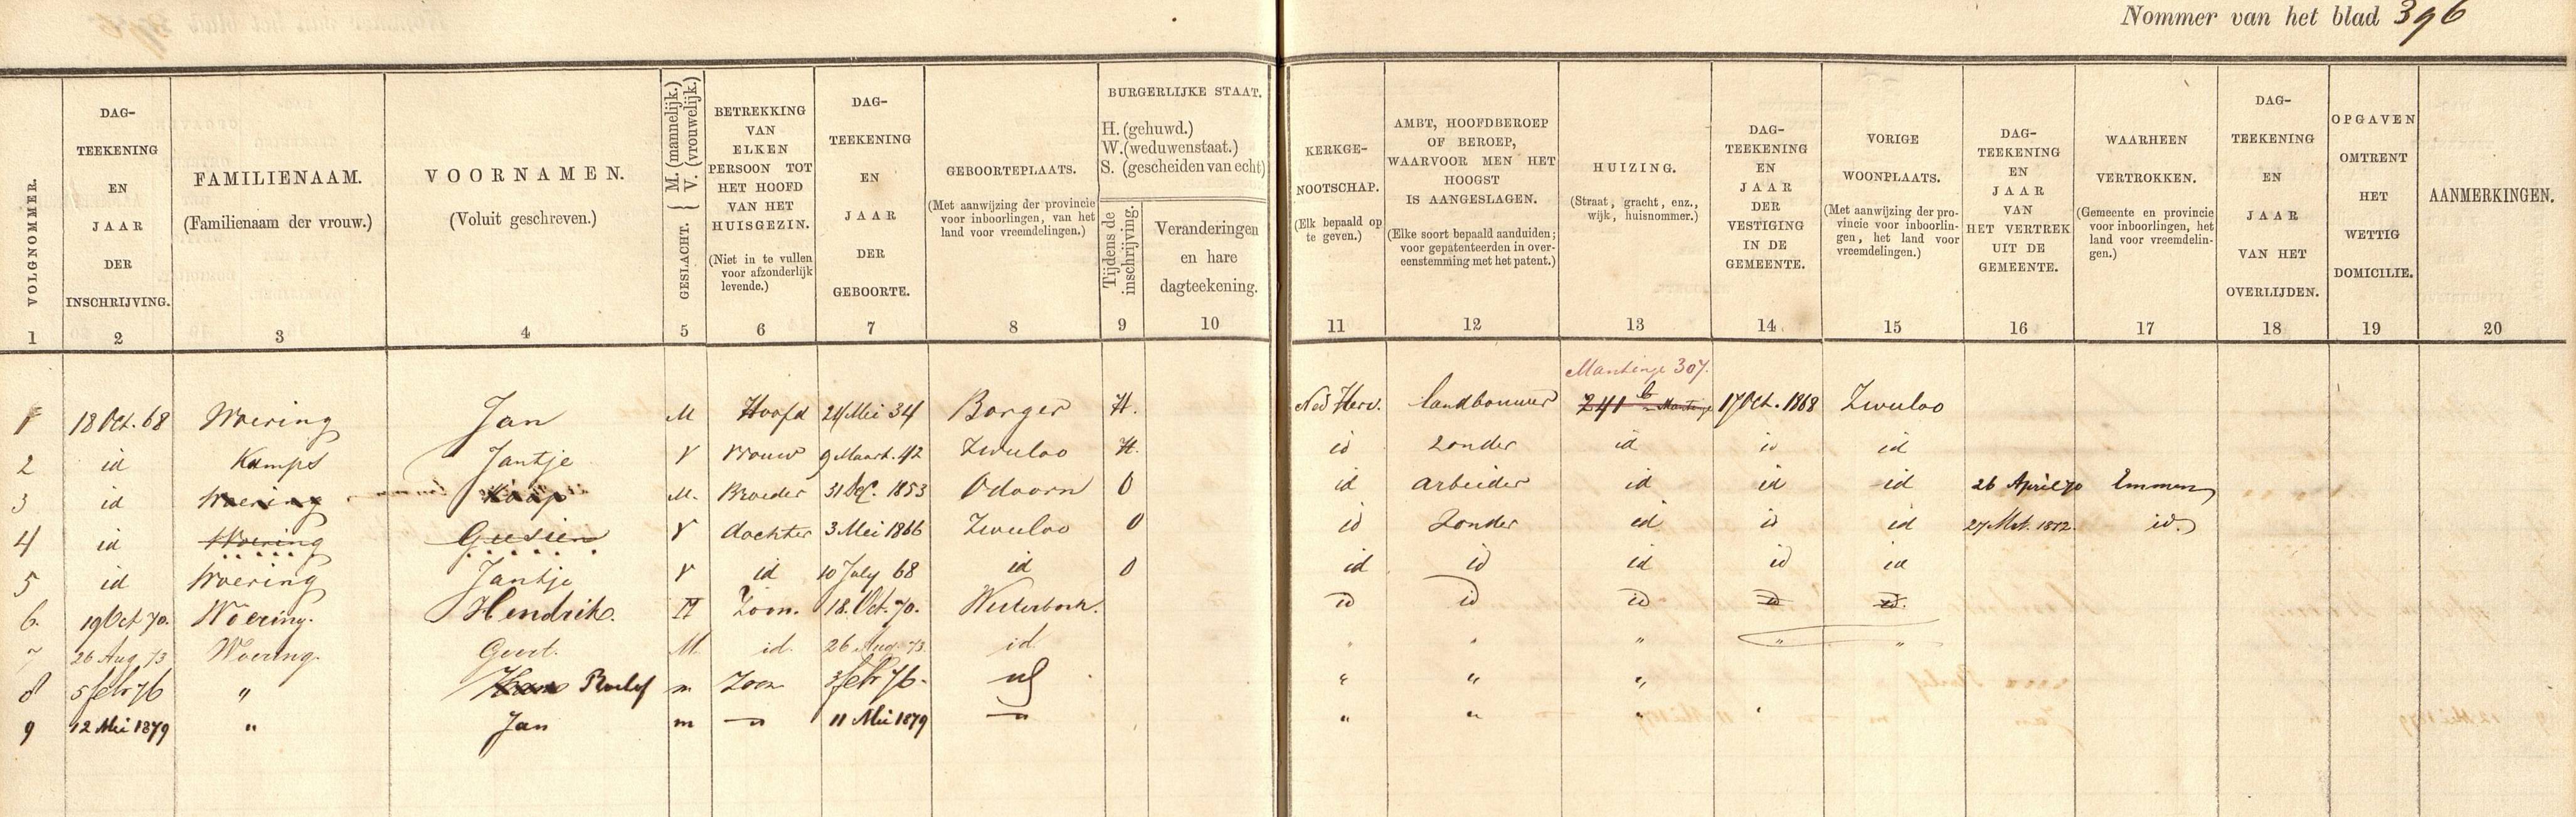 Nommer van het blad 396
VOLGNOMMER.
DAG-
TEEKENING
EN
JAAR
DER
INSCHRIJVING.
FAMILIENAAM.
(Familienaam der vrouw.)
VOORNAMEN.
(Voluit geschreven.)
GESLACHT. { M. (mannelijk.) V. (vrouwelijk.)
BETREKKING
VAN
ELKEN
PERSOON TOT
HET HOOFD
VAN HET
HUISGEZIN.
(Niet in te vullen
voor afzonderlijk
levende.)
DAG-
TEEKENING
EN
JAAR
DER
GEBOORTE.
GEBOORTEPLAATS.
(Met aanwijzing der provincie
voor inboorlingen, van het
land voor vreemdelingen.)
BURGERLIJKE STAAT.
H. (gehuwd.)
W. (weduwenstaat.)
S. (gescheiden van echt)
Tijdens de
inschrijving.
Veranderingen
en hare
dagteekening.
KERKGE-
NOOTSCHAP.
(Elk bepaald op
te geven.)
AMBT, HOOFDBEROEP
OF BEROEP,
WAARVOOR MEN HET
HOOGST
IS AANGESLAGEN.
(Elke soort bepaald aanduiden;
voor gepatenteerden in over-
eenstemming met het patent.)
HUIZING.
(Straat, gracht, enz.,
wijk, huisnommer.)
DAG-
TEEKENING
EN
JAAR
DER
VESTIGING
IN DE
GEMEENTE.
VORIGE
WOONPLAATS.
(Met aanwijzing der pro-
vincie voor inboorlin-
gen, het land voor
vreemdelingen.)
DAG-
TEEKENING
EN
JAAR
VAN
HET VERTREK
UIT DE
GEMEENTE.
WAARHEEN
VERTROKKEN.
(Gemeente en provincie
voor inboorlingen, het
land voor vreemdelin-
gen.)
DAG-
TEEKENING
EN
JAAR
VAN HET
OVERLIJDEN.
OPGAVEN
OMTRENT
HET
WETTIG
DOMICILIE.
AANMERKINGEN.
1 2 3 4 5 6 7 8 9 10 11 12 13 14 15 16 17 18 19 20
Mantinge 307.
1 18 Oct. 68 Woering Jan M Hoofd 24 Mei 34 Borger H. Ned Herv. landbouwer 241 b Mantinge 17 Oct. 1868 Zweeloo
2 id Kamps Jantje V vrouw 9 Maart. 42 Zweeloo H. id zonder id id id
3 id Woering Koop M. Broeder 31 Dec. 1853 Odoorn O id arbeider id id id 26 April 70 Emmen
4 id Woering Geesien V dochter 3 Mei 1866 Zweeloo O id zonder id id id 27 Mrt. 1872. id.
5 id Woering Jantje V id 10 July 68 id O id id id id id
6. 19 Oct 70. Woering. Hendrik. M Zoon. 18. Oct. 70. Westerbork. id id id id id.
7 26 Aug 73 Woering. Geert. M id. 26 Aug. 73. id. " " " "
8 5 febr 76 " Roelof m Zoon 3 febr 76. id " " "
9 12 Mei 1879 " Jan m — " 11 Mei 1879 — " " " "